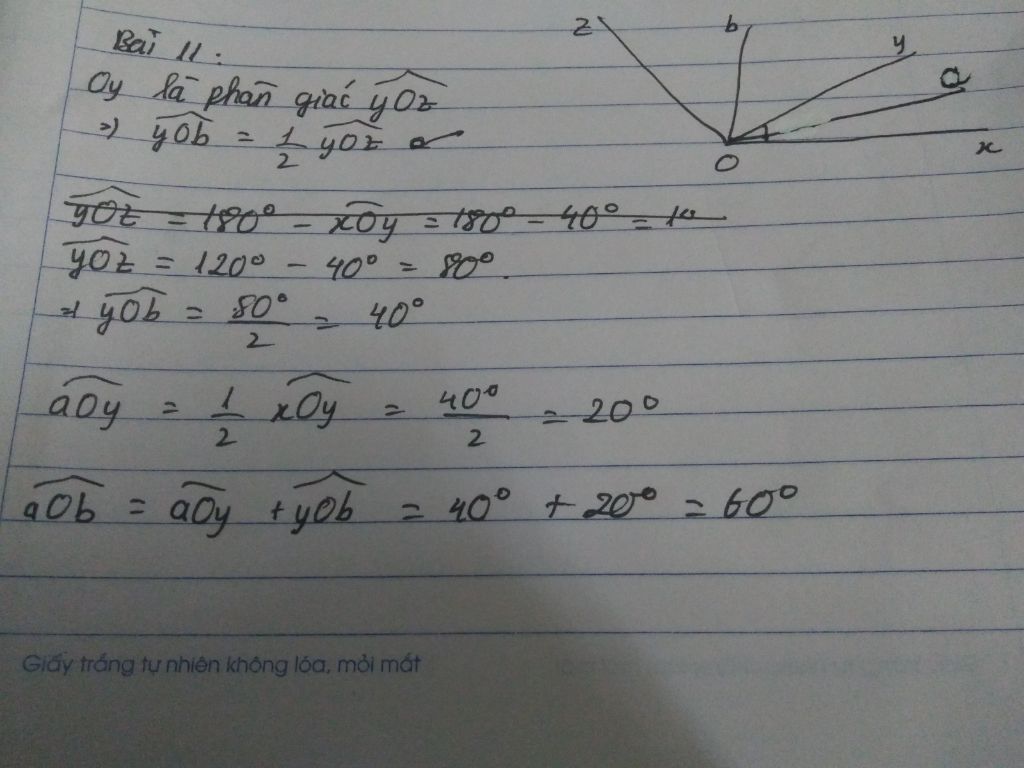 Bài 11:
Oy là phân giác yOz
=> yOb = 1/2 yOz
yOz = 180° - xOy = 180° - 40° = 1
yOz = 120° - 40° = 80°.
=> yOb = 80°/2 = 40°
aOy = 1/2 xOy = 40°/2 = 20°
aOb = aOy + yOb = 40° + 20° = 60°
z
b
y
a
x
O
Giấy trắng tự nhiên không lóa, mỏi mắt